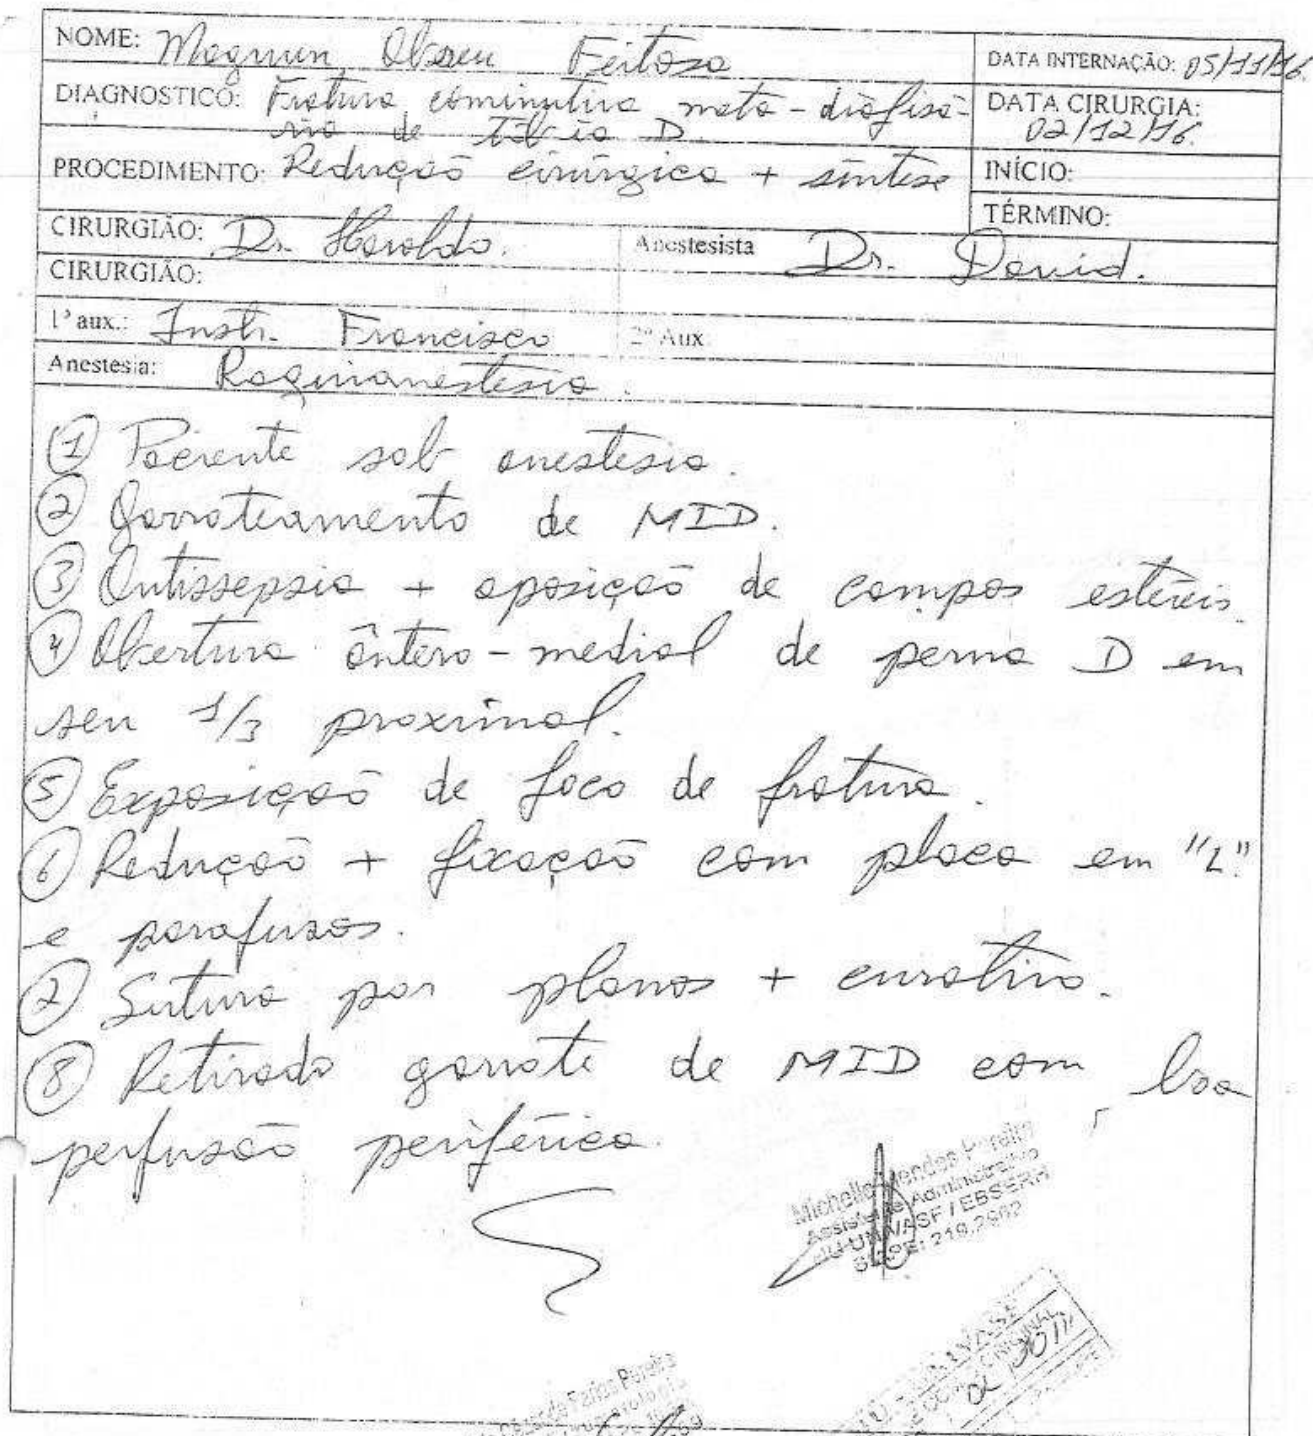 NOME: Magnun Abreu Feitosa
DATA INTERNAÇÃO: 05/11/16
DIAGNOSTICO: Fratura cominutiva meta-diafisá-
ria de tíbia D.
DATA CIRURGIA:
02/12/16.
PROCEDIMENTO: Redução cirúrgica + síntese
INÍCIO:
TÉRMINO:
CIRURGIÃO: Dr. Haroldo.
Anestesista Dr. David.
CIRURGIÃO:
1º aux.: Instr. Francisco
2º Aux
Anestesia: Raquianestesia.
① Paciente sob anestesia.
② Garroteamento de MID.
③ Antissepsia + aposição de campos estéreis.
④ Abertura ântero-medial de perna D em
seu 1/3 proximal.
⑤ Exposição de foco de fratura.
⑥ Redução + fixação com placa em "L"
e parafusos.
⑦ Sutura por planos + curativo.
⑧ Retirado garrote de MID com boa
perfusão periférica.
Michelle Mendes Pereira
Assistente Administrativo
HU-UNIVASF / EBSERH
SIAPE: 219.2982
Farias Pereira